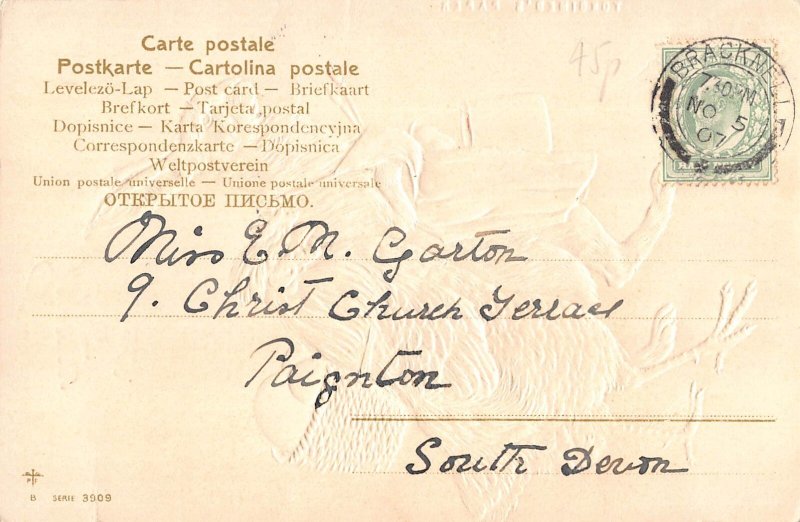 Carte postale
Postkarte — Cartolina postale
Levelezö-Lap — Post card — Briefkaart
Brefkort — Tarjeta postal
Dopisnice — Karta Korespondencyjna
Correspondenzkarte — Dopisnica
Weltpostverein
Union postale universelle — Unione postale universale
ОТКРЫТОЕ ПИСЬМО.
45p
BRACKNELL
7.30PM
NO 5
07
Miss E. M. Garton
9. Christ Church Terrace
Paignton
South Devon
B SERIE 3909